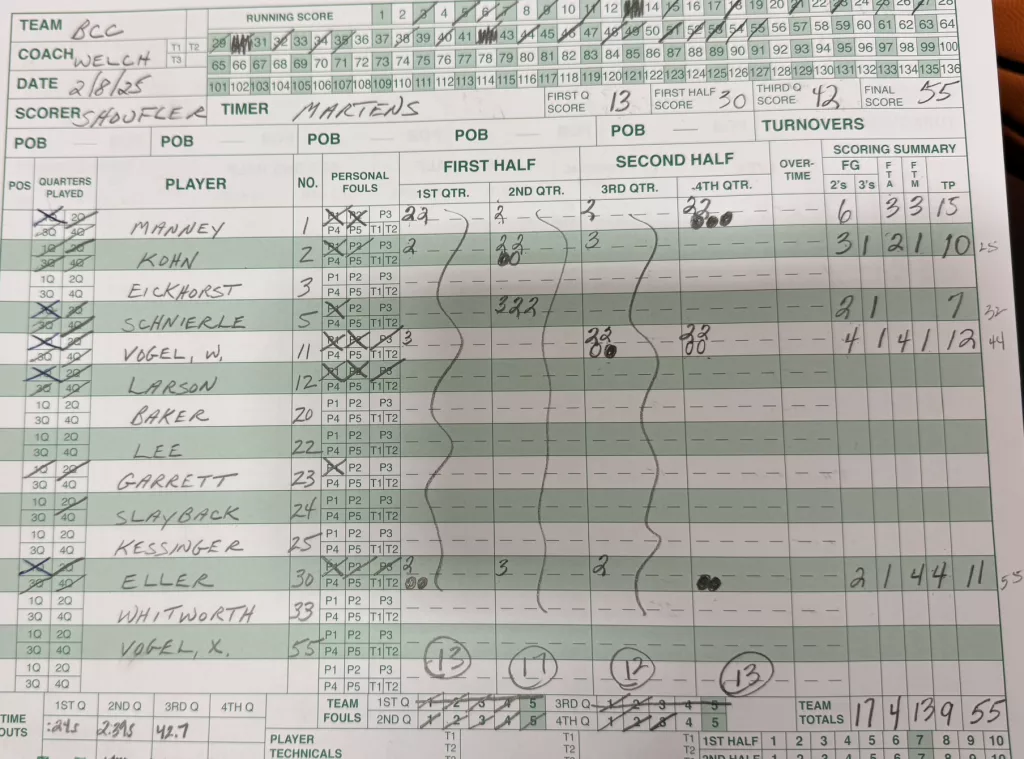 TEAM BCC RUNNING SCORE 1 2 3 4 5 6 7 8 9 10 11 12 14 15 16 17 18 19 20 21 22
COACH WELCH T1 T2 T3 29 31 32 33 34 35 36 37 38 39 40 41 43 44 45 46 47 48 49 50 51 52 53 54 55 56 57 58 59 60 61 62 63 64
65 66 67 68 69 70 71 72 73 74 75 76 77 78 79 80 81 82 83 84 85 86 87 88 89 90 91 92 93 94 95 96 97 98 99 100
DATE 2/8/25 101 102 103 104 105 106 107 108 109 110 111 112 113 114 115 116 117 118 119 120 121 122 123 124 125 126 127 128 129 130 131 132 133 134 135 136
SCORER SHOUFLER TIMER MARTENS FIRST Q SCORE 13 FIRST HALF SCORE 30 THIRD Q SCORE 42 FINAL SCORE 55
POB — POB — POB — POB POB — TURNOVERS
POS QUARTERS PLAYED PLAYER NO. PERSONAL FOULS FIRST HALF SECOND HALF OVER-TIME SCORING SUMMARY
1ST QTR. 2ND QTR. 3RD QTR. 4TH QTR. FG 2's 3's FTA FTM TP
MANNEY 1 P3 P4 P5 T1 T2 22 2 2 22 6 3 3 15
KOHN 2 P2 P3 P4 P5 T1 T2 2 22 3 3 1 2 1 10 25
1Q 2Q 3Q 4Q EICKHORST 3 P1 P2 P3 P4 P5 T1 T2
SCHNIERLE 5 P2 P3 P4 P5 T1 T2 322 2 1 7 32
VOGEL, W. 11 P4 P5 T1 T2 3 22 22 00 4 1 4 1 12 44
LARSON 12 P4 P5 T1 T2
1Q 2Q 3Q 4Q BAKER 20 P1 P2 P3 P4 P5 T1 T2
1Q 2Q 3Q 4Q LEE 22 P1 P2 P3 P4 P5 T1 T2
1Q 2Q 3Q 4Q GARRETT 23 P2 P3 P4 P5 T1 T2
1Q 2Q 3Q 4Q SLAYBACK 24 P1 P2 P3 P4 P5 T1 T2
1Q 2Q 3Q 4Q KESSINGER 25 P1 P2 P3 P4 P5 T1 T2
ELLER 30 P4 P5 T1 T2 2 3 2 2 1 4 4 11 55
1Q 2Q 3Q 4Q WHITWORTH 33 P1 P2 P3 P4 P5 T1 T2
1Q 2Q 3Q 4Q VOGEL, X. 55 P1 P2 P3 P4 P5 T1 T2
1Q 2Q 3Q 4Q P1 P2 P3 P4 P5 T1 T2 13 17 12 13
1ST Q 2ND Q 3RD Q 4TH Q TEAM FOULS 1ST Q 1 2 3 4 5 3RD Q 1 2 3 4 5 TEAM TOTALS 17 4 13 9 55
2ND Q 1 2 3 4 5 4TH Q 1 2 3 4 5
TIME OUTS :24s 2.39s 42.7 PLAYER TECHNICALS T1 T2 T1 T2 1ST HALF 1 2 3 4 5 6 7 8 9 10